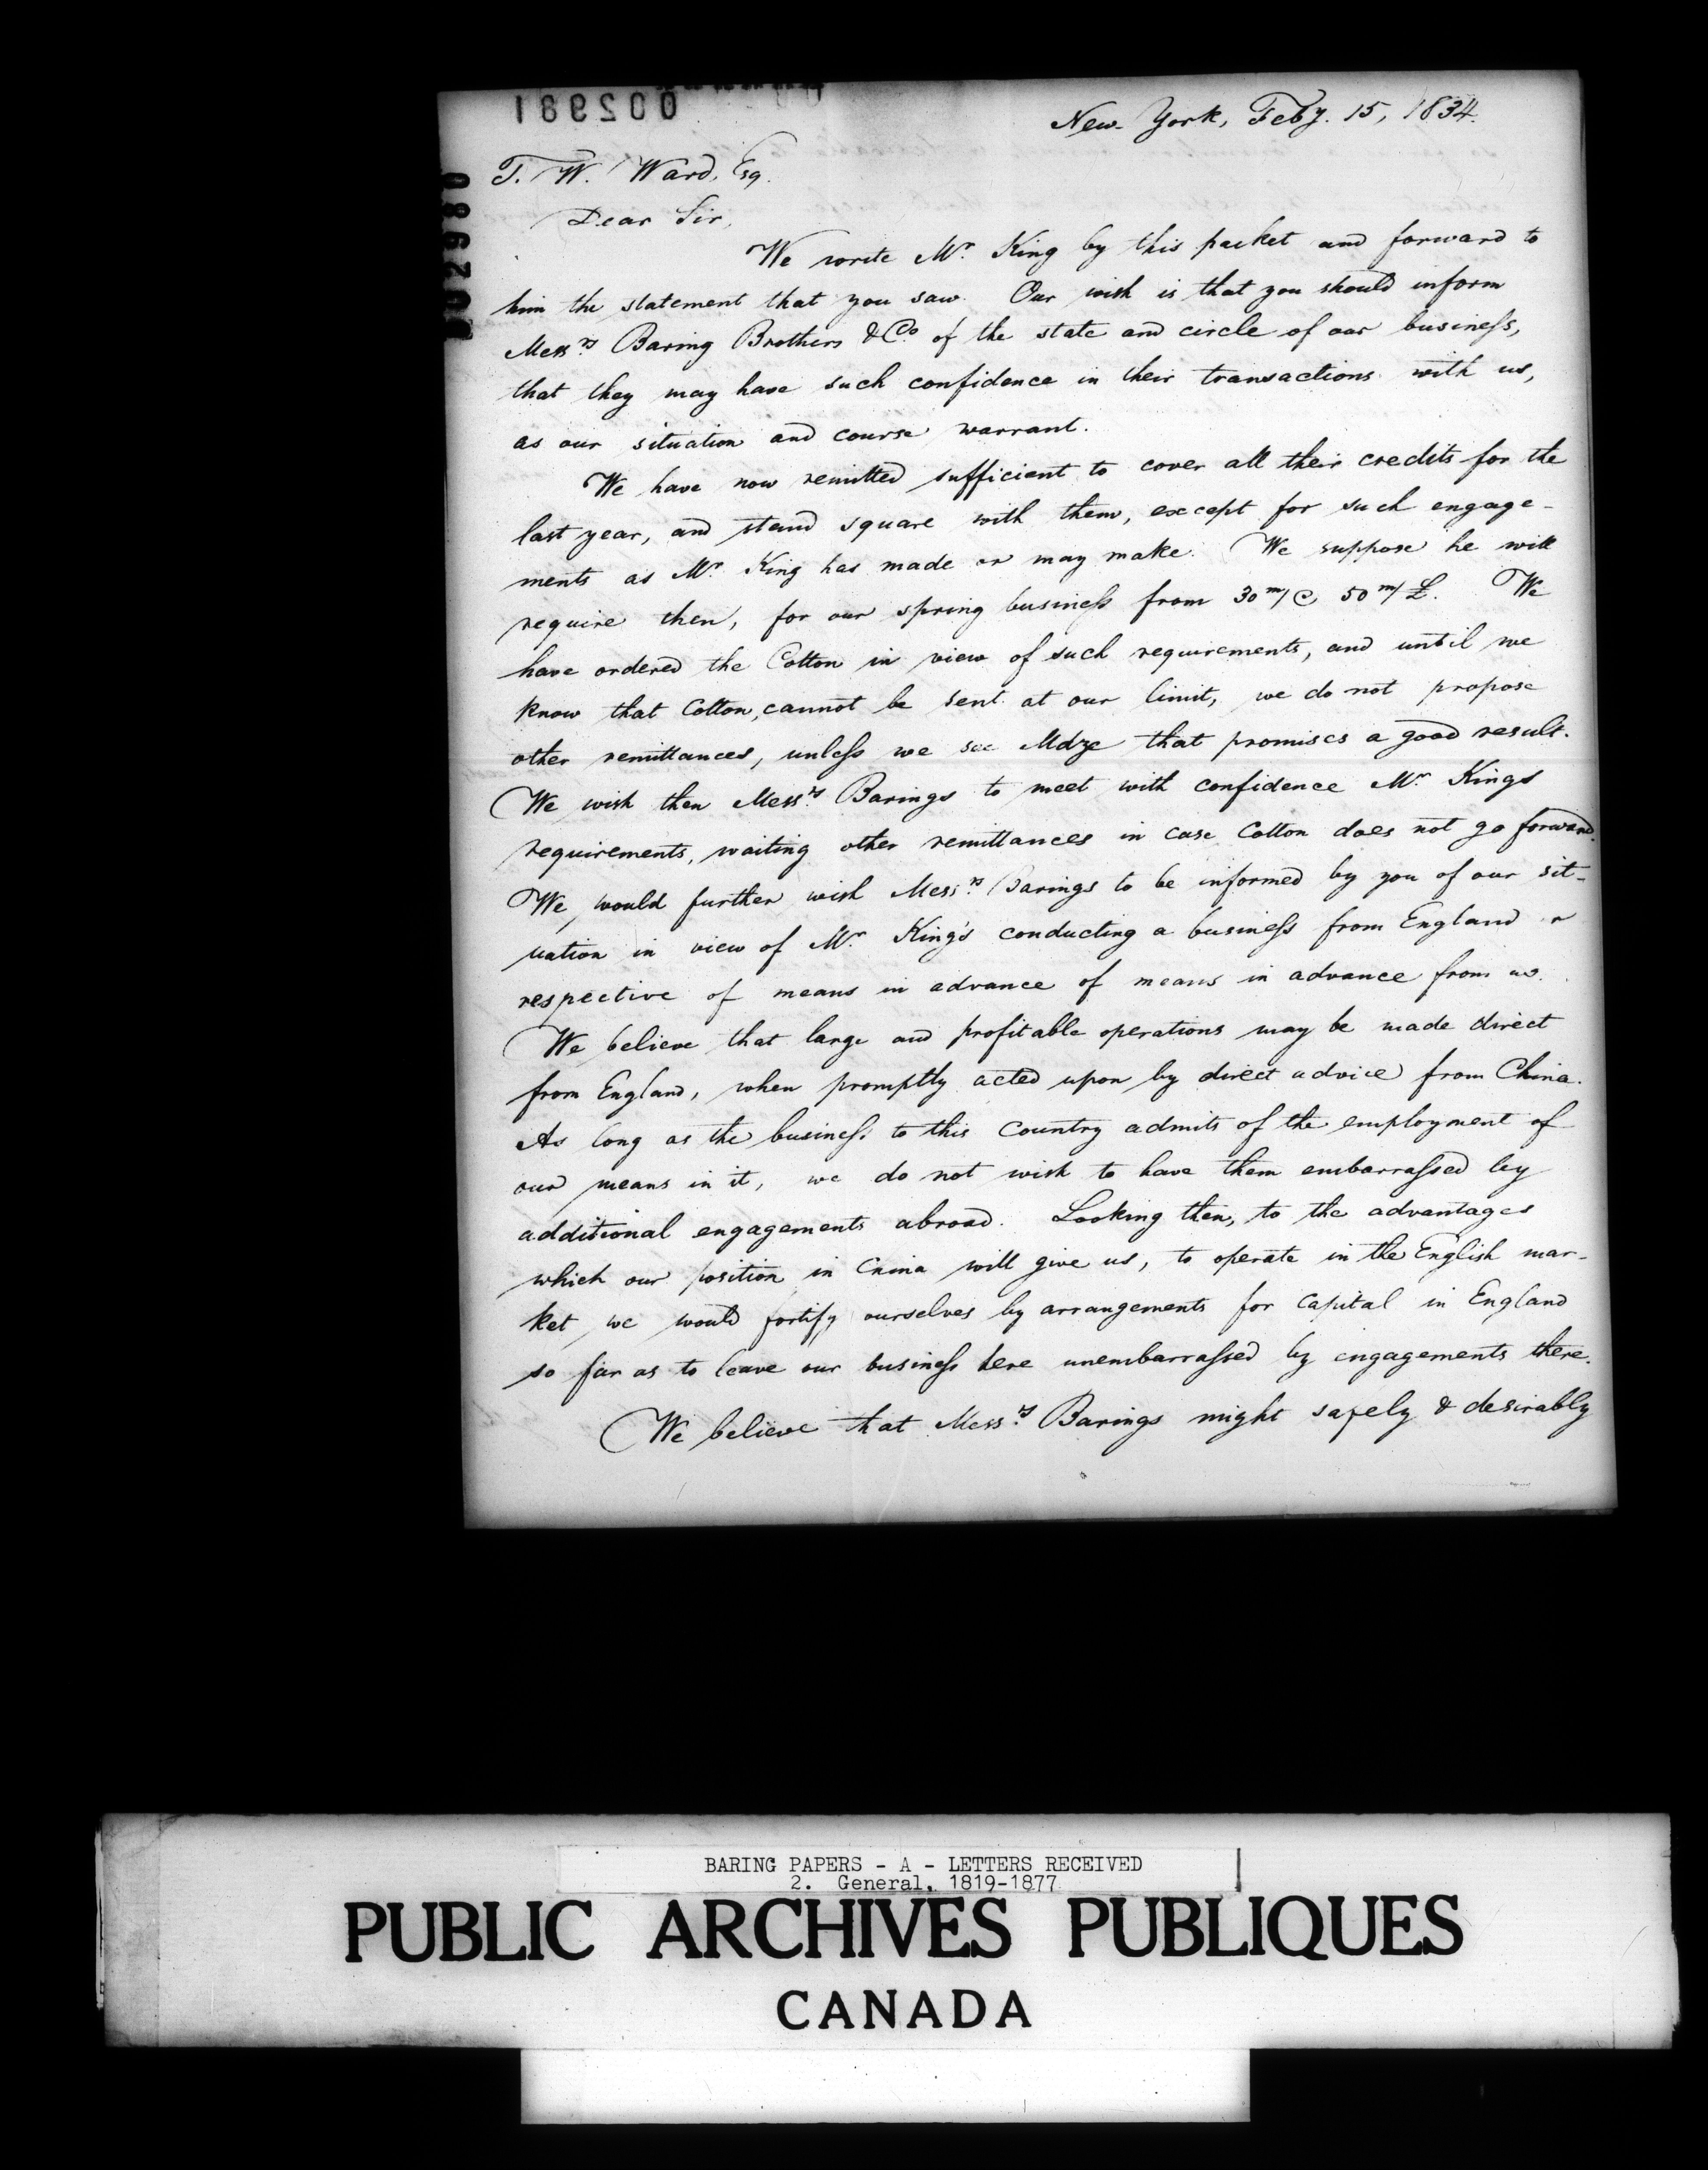 002981
002980
New-York, Feby. 15, 1834.
T. W. Ward, Esq.
Dear Sir,
We wrote Mr. King by this packet and forward to
him the statement that you saw. Our wish is that you should inform
Messrs Baring Brothers & Co. of the state and circle of our business,
that they may have such confidence in their transactions with us,
as our situation and course warrant.
We have now remitted sufficient to cover all their credits for the
last year, and stand square with them, except for such engage-
ments as Mr. King has made or may make. We suppose he will
require then, for our spring business from 30 m/ @ 50 m/ £. We
have ordered the Cotton in view of such requirements, and until we
know that Cotton, cannot be sent at our limit, we do not propose
other remittances, unless we see Mdze that promises a good result.
We wish then Messrs Barings to meet with confidence Mr. Kings
requirements, waiting other remittances in case Cotton does not go forward.
We, would further wish Messrs Barings to be informed by you of our sit-
uation in view of Mr. King's conducting a business from England
respective of means in advance of means in advance from us.
We believe that large and profitable operations may be made direct
from England, when promptly acted upon by direct advice from China.
As long as the business to this Country admits of the employment of
our means in it, we do not wish to have them embarrassed by
additional engagements abroad. Looking then, to the advantages
which our position in China will give us, to operate in the English mar-
ket we would fortify ourselves by arrangements for Capital in England
so far as to leave our business here unembarrassed by engagements there.
We believe that Messrs Barings might safely & desirably
BARING PAPERS - A - LETTERS RECEIVED
2. General, 1819-1877
PUBLIC ARCHIVES PUBLIQUES
CANADA